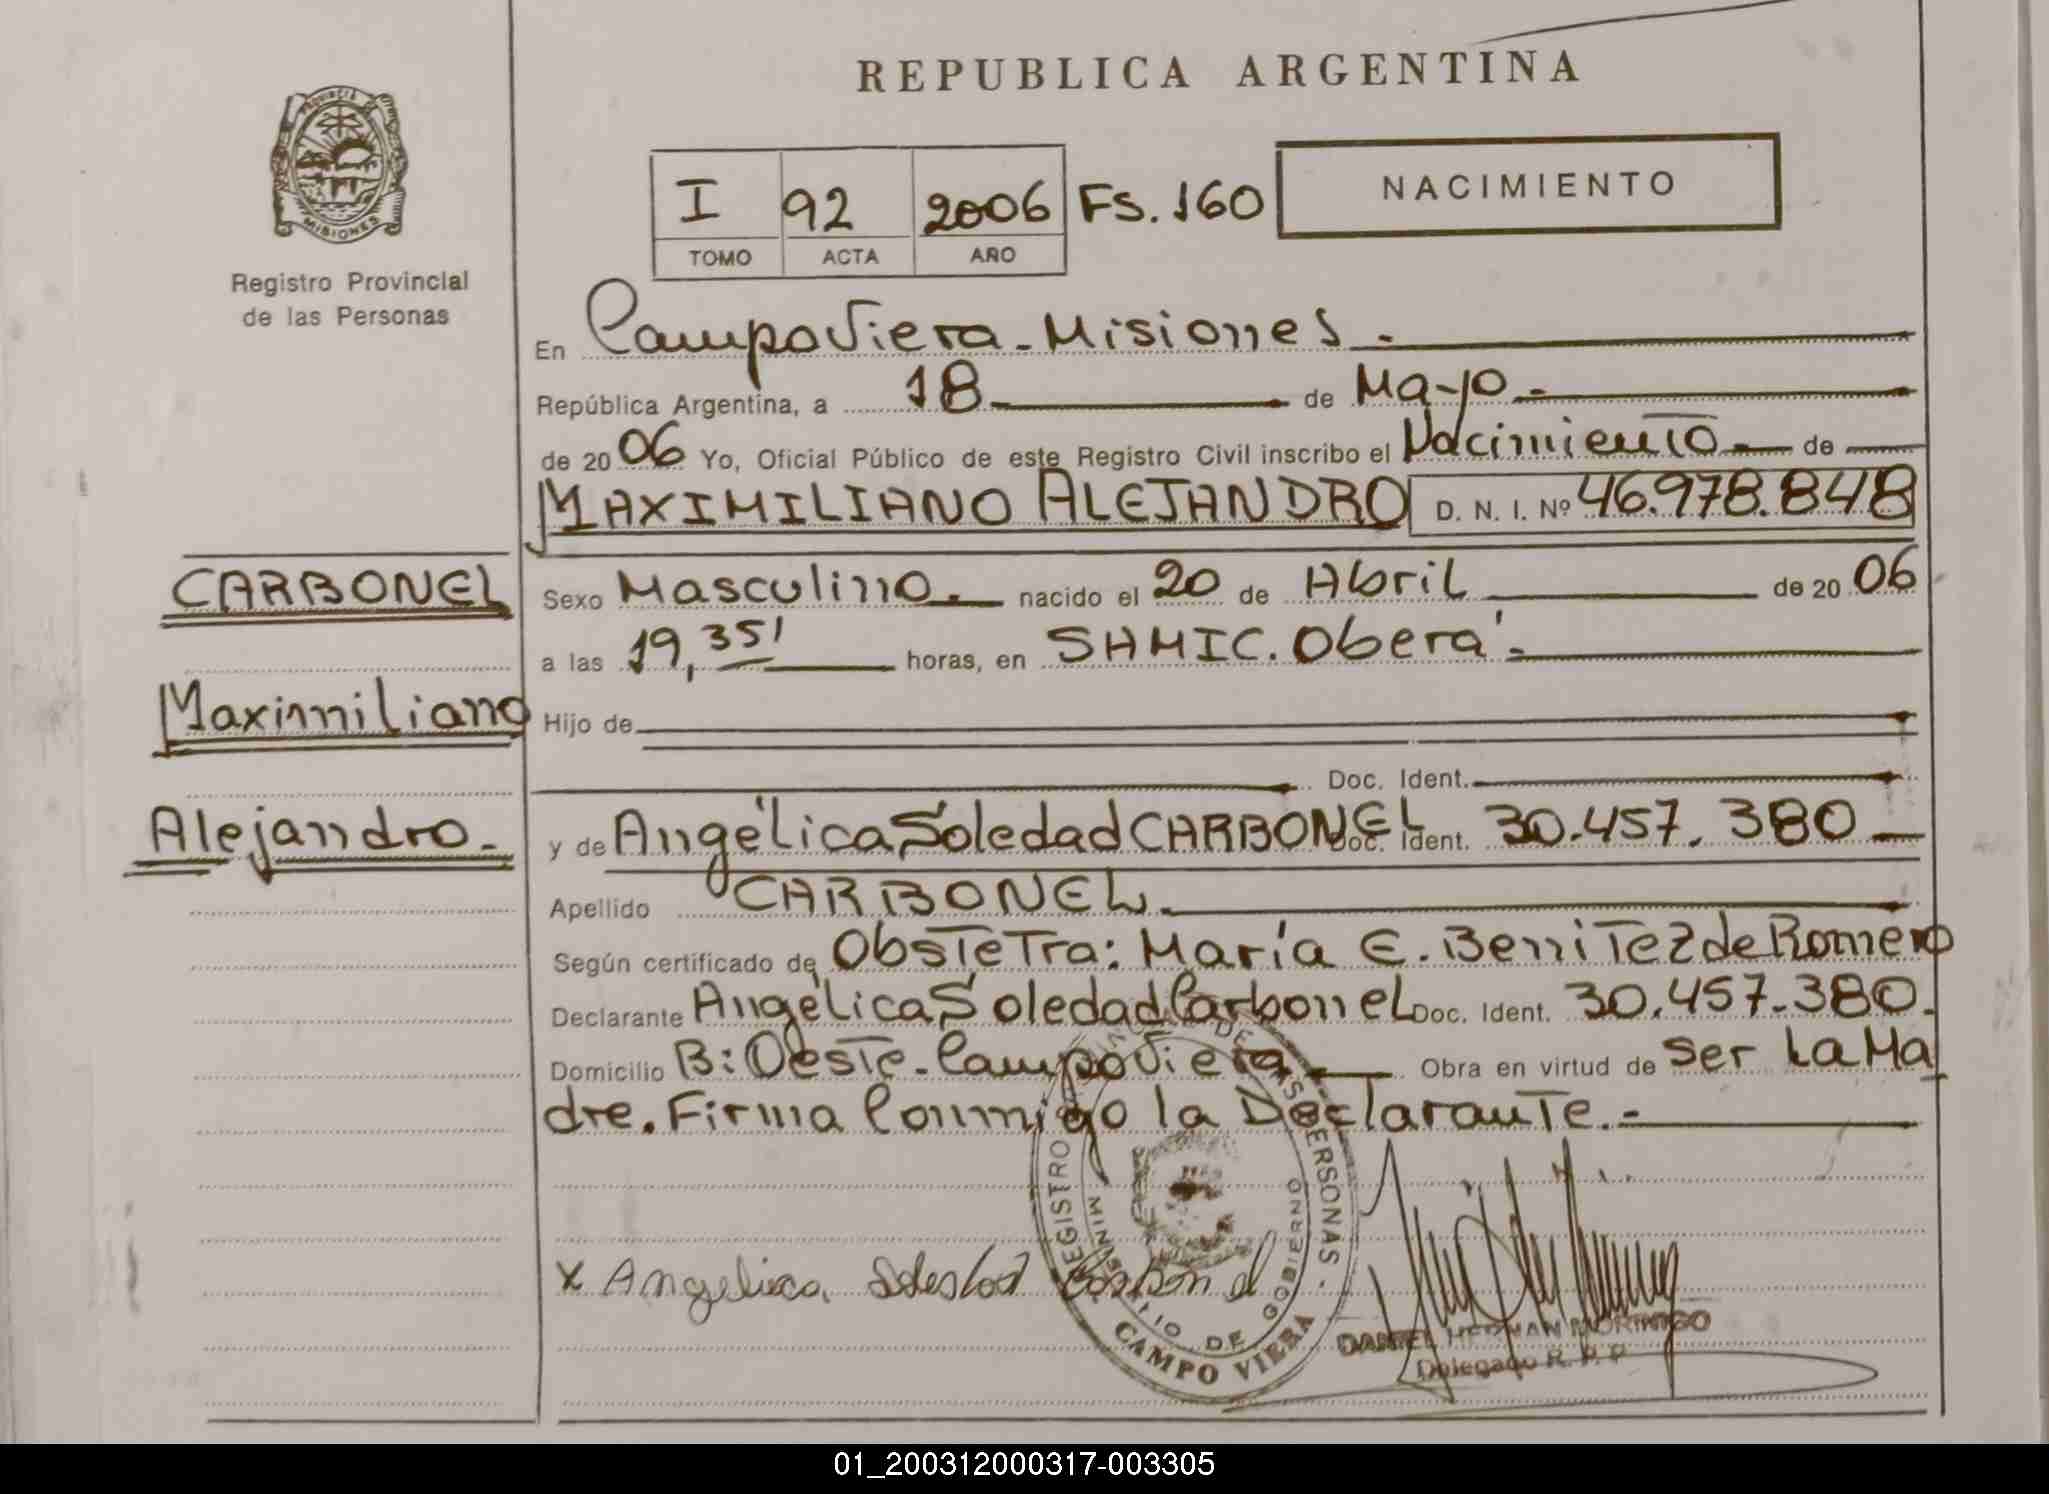 REPUBLICA ARGENTINA
PROVINCIA DE
MISIONES
Registro Provincial
de las Personas
I 92 2006 Fs. 160
TOMO ACTA AÑO
NACIMIENTO
En Campo Viera - Misiones.-
República Argentina, a 18 de Mayo.-
de 20 06 Yo, Oficial Público de este Registro Civil inscribo el Nacimiento - de
MAXIMILIANO ALEJANDRO D. N. I. Nº 46.978.848
CARBONEL
Maximiliano
Alejandro.-
Sexo Masculino. nacido el 20 de Abril de 20 06
a las 19,35' horas, en SAMIC. Oberá.-
Hijo de
Doc. Ident.
y de Angélica Soledad CARBONEL Doc. Ident. 30.457.380
Apellido CARBONEL.
Según certificado de Obstetra: María E. Benitez de Romero
Declarante Angélica Soledad Carbonel Doc. Ident. 30.457.380.
Domicilio B: Oeste - Campo Viera Obra en virtud de ser La Ma
dre. Firma Conmigo la Declarante.-
x Angelica Soledad Carbonel
REGISTRO DE LAS PERSONAS -
MINISTERIO DE GOBIERNO
CAMPO VIERA
DANIEL HERNAN MORINIGO
Delegado R. P. P.
01_200312000317-003305